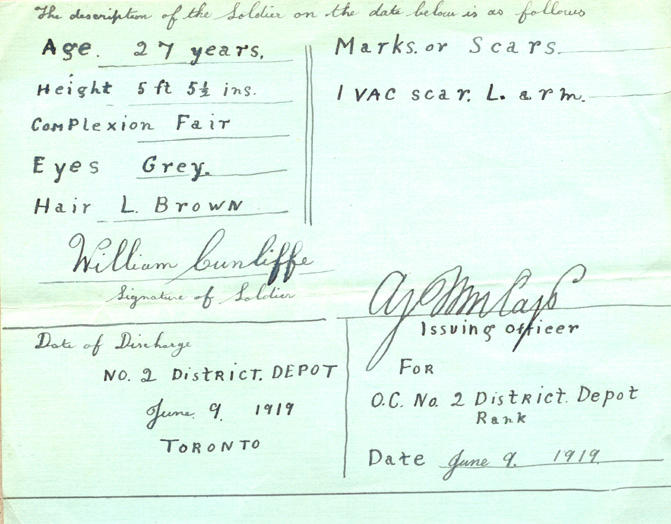 The description of the Soldier on the date below is as follows
Age. 27 years.
Height 5 ft 5½ ins.
Complexion Fair
Eyes Grey.
Hair L. Brown
Marks. or Scars.
1 VAC scar. L. arm.
William Cunliffe
Signature of Soldier
Issuing officer
FOR
O.C. No. 2 District. Depot
Rank
Date June 9. 1919
Date of Discharge
NO. 2 DISTRICT. DEPOT
June. 9. 1919
TORONTO